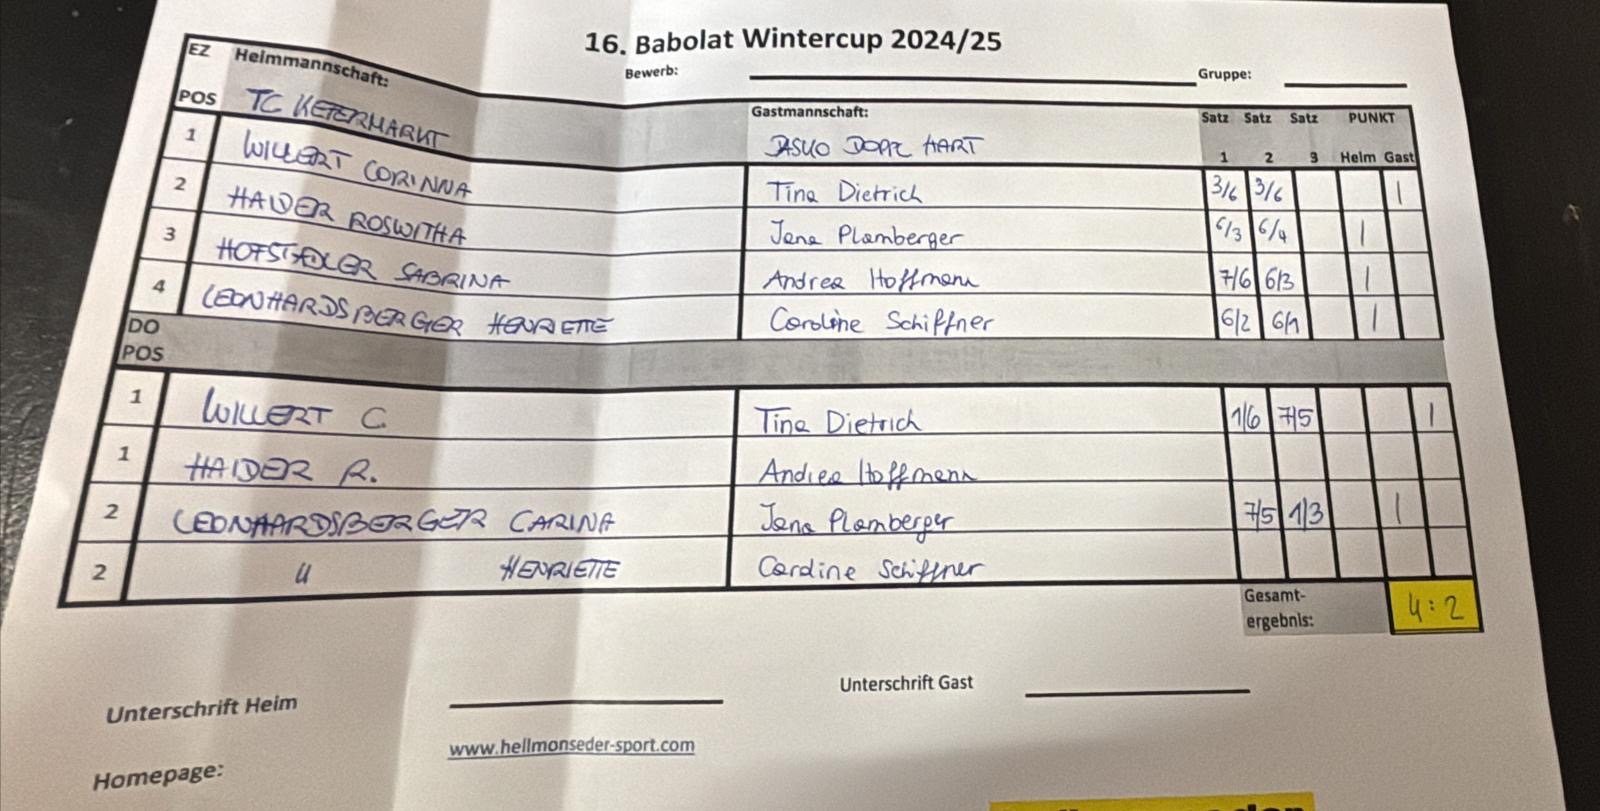 16. Babolat Wintercup 2024/25
Bewerb: Gruppe:
EZ Heimmannschaft: Gastmannschaft: Satz Satz Satz PUNKT
POS TC KEFERMARKT DASKO DOPPL HART 1 2 3 Heim Gast
1 WILLERT CORINNA Tina Dietrich 3/6 3/6 1
2 HAIDER ROSWITHA Jana Plamberger 6/3 6/4 1
3 HOFSTADLER SABRINA Andrea Hoffmann 7/6 6/3 1
4 LEONHARDSBERGER HENRIETTE Caroline Schiffner 6/2 6/1 1
DO
POS
1 WILLERT C. Tina Dietrich 1/6 7/5 1
1 HAIDER R. Andrea Hoffmann
2 LEONHARDSBERGER CARINA Jana Plamberger 7/5 1/3 1
2 " HENRIETTE Caroline Schiffner
Gesamt-
ergebnis: 4:2
Unterschrift Heim Unterschrift Gast
www.hellmonseder-sport.com
Homepage: